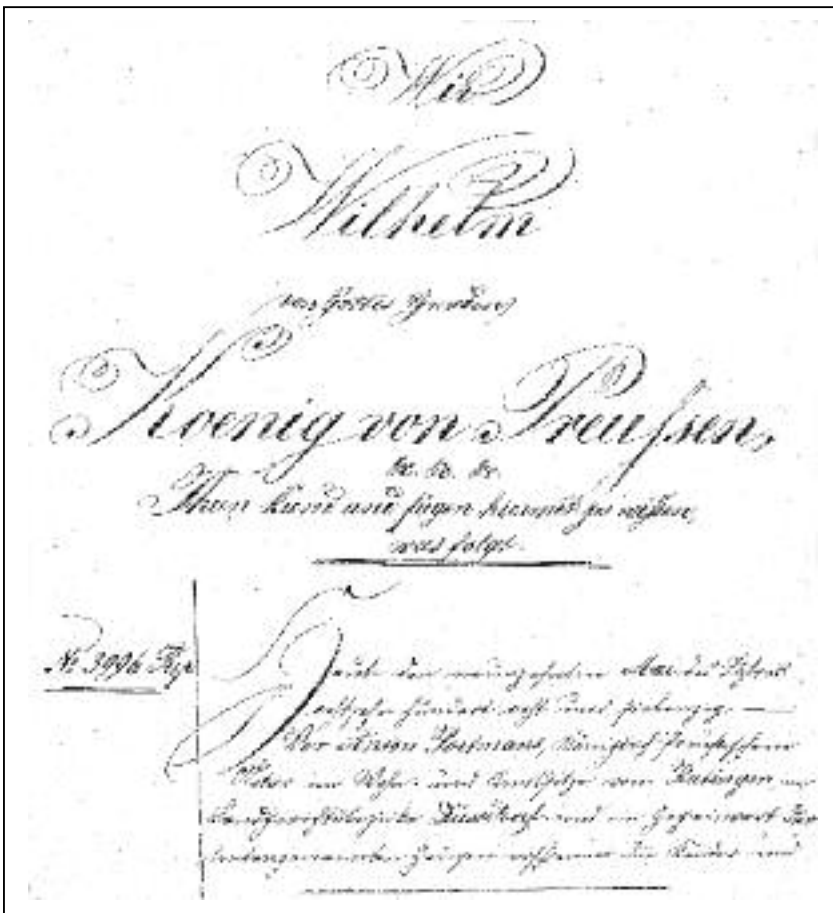 Wir
Wilhelm
von Gottes Gnaden
Koenig von Preußen,
Thun kund und fügen hiermit zu wissen,
was folgt.
No 3996 Rep
Heute den neunzehnten Mai des Jahres
achtzehn hundert acht und siebenzig. —
Vor Anton Postmans, Königlich Preußischem
Notar im Wohn- und Amtssitze von Ratingen im
Landgerichtsbezirke Düsseldorf und in Gegenwart der
Zeugen erschienen die und